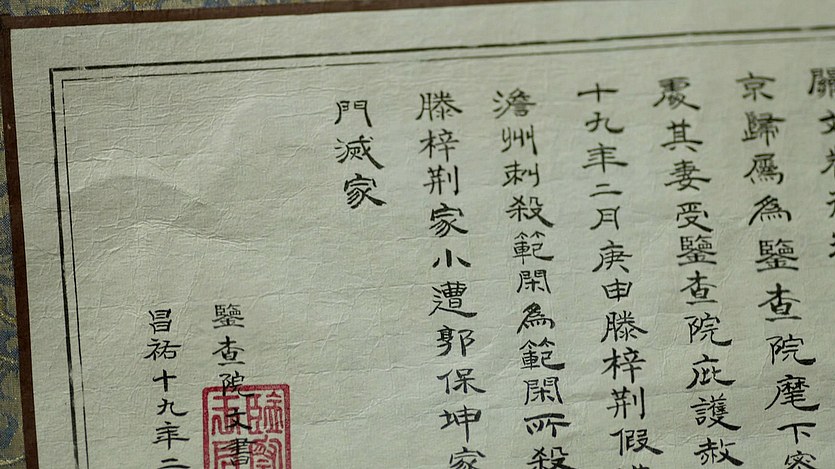 關文
京歸屬為鑒查院麾下密
處其妻受鑒查院庇護赦
十九年二月庚申滕梓荆假
澹州刺殺範閑為範閑所殺
滕梓荆家小遭郭保坤家
門滅家
鑒查院文書
昌祐十九年二